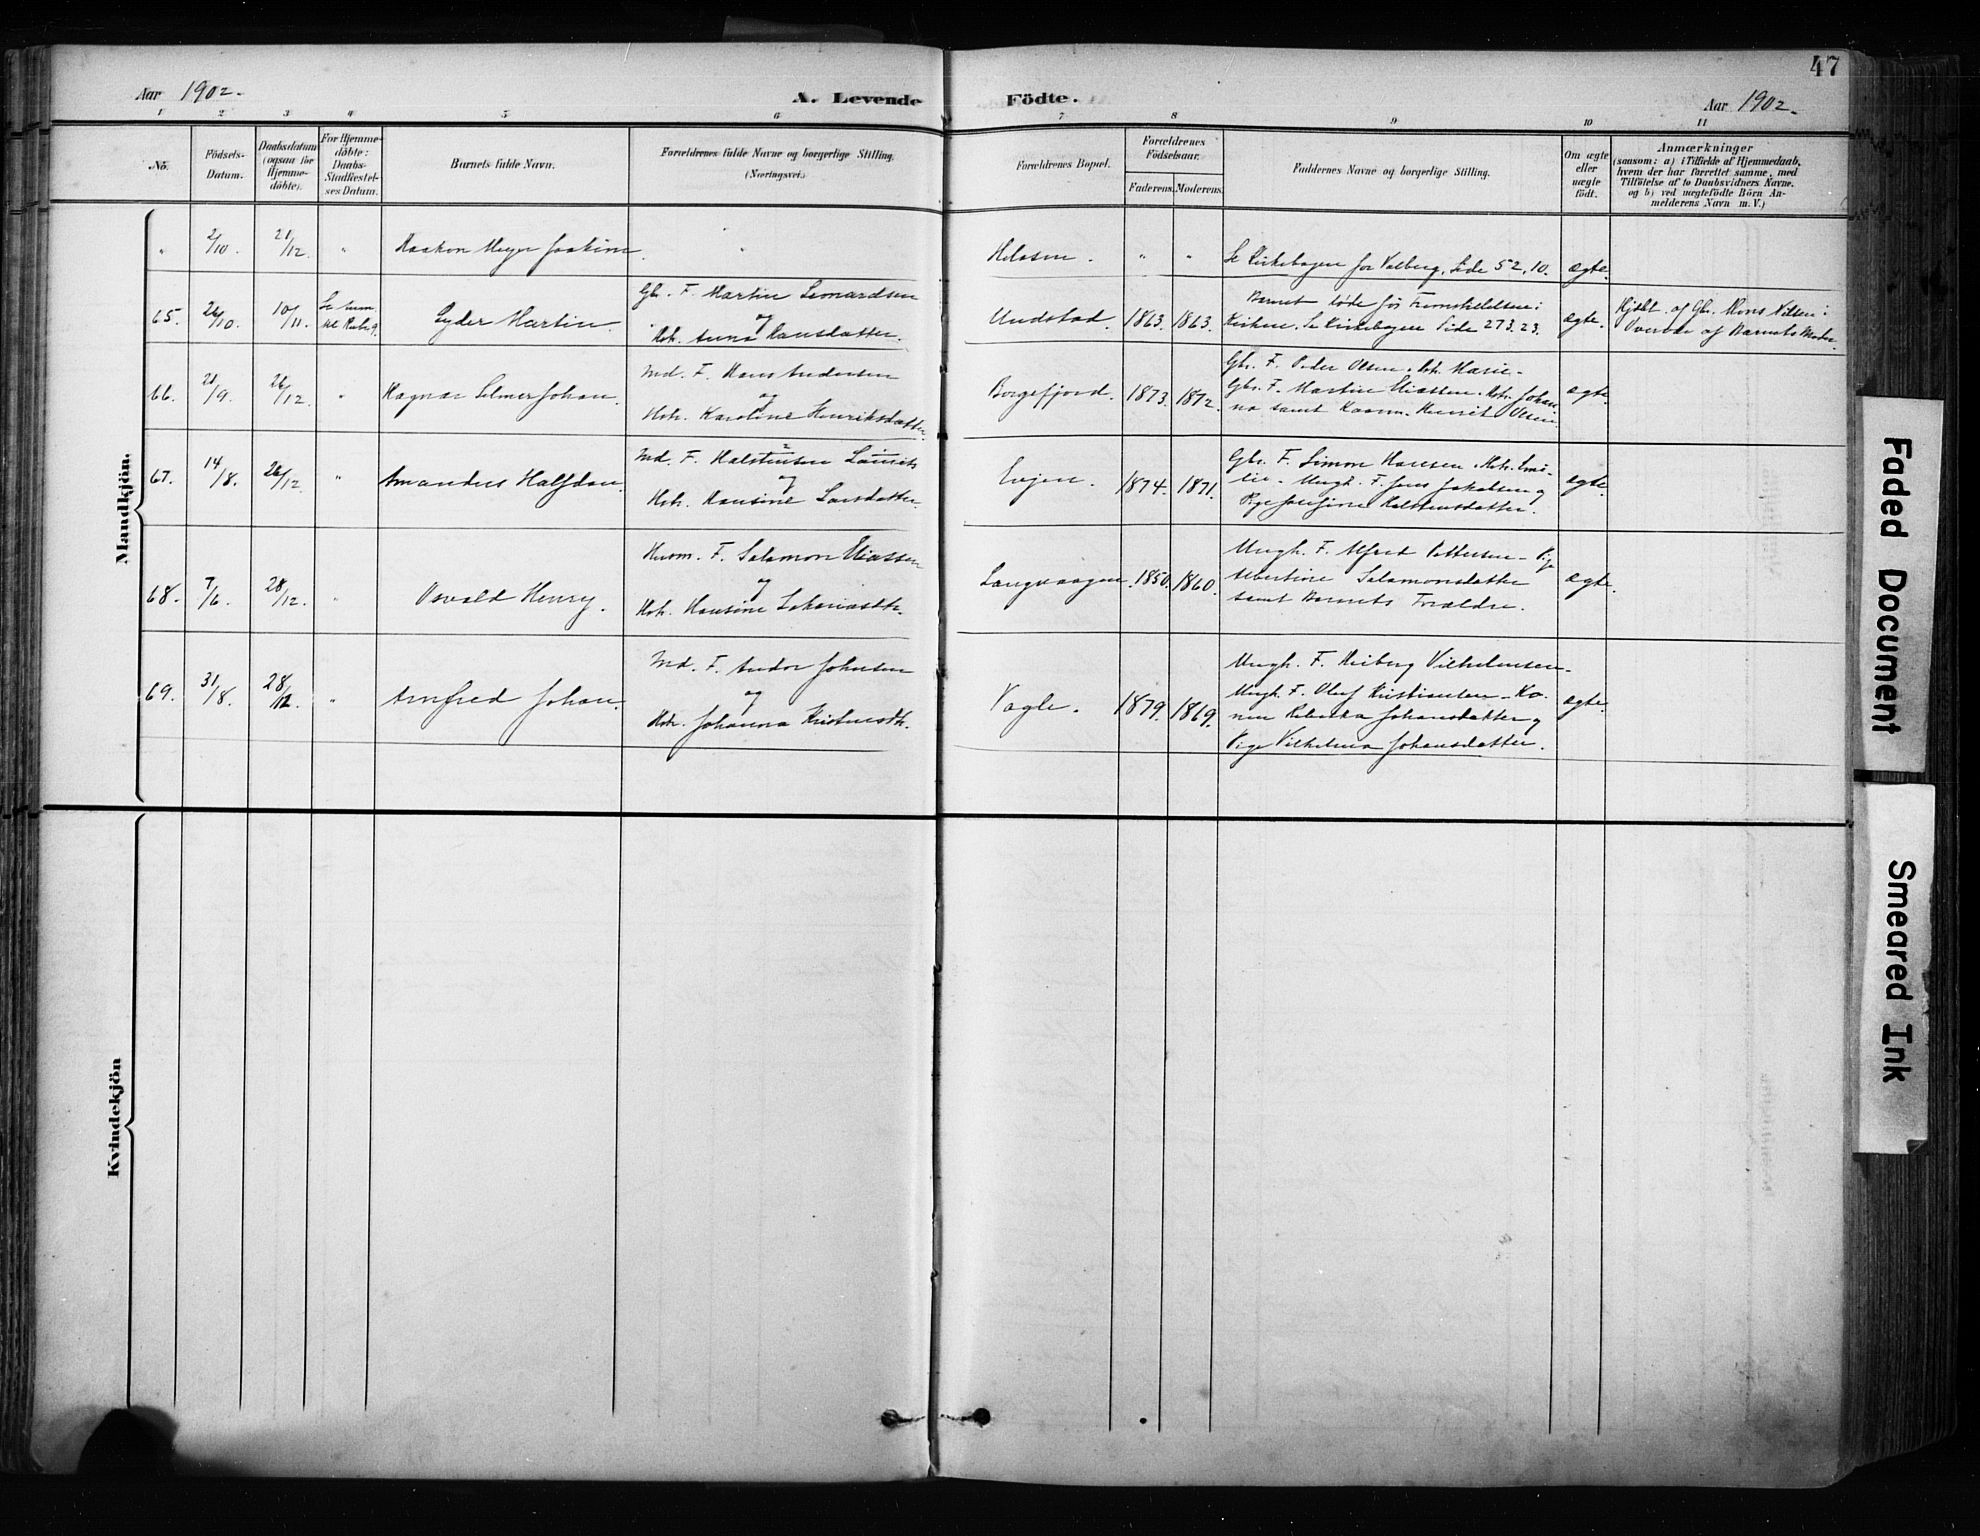 47
Aar 1902.
A. Levende Födte.
Aar 1902.
1 2 3 4 5 6 7 8 9 10 11
No.
Födsels-Datum.
Daabsdatum (ogsaa for Hjemme-döbte).
For Hjemme-döbte: Daabs-Stadfæstel-ses Datum.
Barnets fulde Navn.
Forældrenes fulde Navne og borgerlige Stilling. (Næringsvei.)
Forældrenes Bopæl.
Forældrenes Födselsaar.
Faderens. Moderens.
Faddernes Navne og borgerlige Stilling.
Om ægte eller uægte födt.
Anmærkninger
(saasom: a) i Tilfælde af Hjemmedaab,
hvem der har forrettet samme, med
Tilföielse af to Daabsvidners Navne.
og b) ved uægtefödte Börn An-
melderens Navn m. V.)
Mandkjön.
" 2/10. 21/12. " Haakon Meyer Joakim. " " " Se Kirkebogen for Valberg, Side 52, 10. ægte.
65. 26/10. 10/11. Gyder Martin.
Gbr. F. Martin Leonardsen
og
Hstr. Anna Hansdatter.
Undstad. 1863. 1863.
Barnet døde før Fremstillelsen i
Kirken. Se Kirkebogen Side 273. 23.
ægte.
Hjdbt. af Gbr. Mons Nilsen i
Overvær af Barnets Moder.
66. 21/9. 26/12. " Ragnar Elmer Johan.
Md. F. Hans Andersen
og
Hstr. Karoline Henriksdatter.
Borgefjord. 1873. 1872.
Gbr. F. Peder Olsen. Hstr. Marie.
Gbr. F. Martin Eliassen. Hstr. Johan-
na samt Olsen.
ægte.
67. 14/8. 26/12. " Amandus Halfdan.
Md. F. Halstensen Laurits
og
Hstr. Hansine Larsdatter.
Evjen. 1874. 1871.
Gbr. F. Simon Hansen. Hstr. Emi-
lie. Ungk. F. Jens Jakobsen og
Pige Josefine Halstensdatter.
ægte.
68. 7/6. 28/12. " Osvald Henry.
F. Salamon Eliassen
og
Hstr. Hansine
Langvaagen. 1850. 1860.
Ungk. F. Alfred Pettersen - Pige
Albertine Salamonsdatter
samt Barnets Forældre.
ægte.
69. 31/8. 28/12. " Arnfred Johan.
Md. F. Andor Johnsen
og
Hstr. Johanna
Vagle. 1879. 1869.
Ungk. F. Vilhelmsen.
Ungk. F. Oluf Kristiansen - Ko-
nen Rebekka Johansdatter og
Pige Vilhelma Johansdatter.
ægte.
Kvindekjön
Faded Document
Smeared Ink